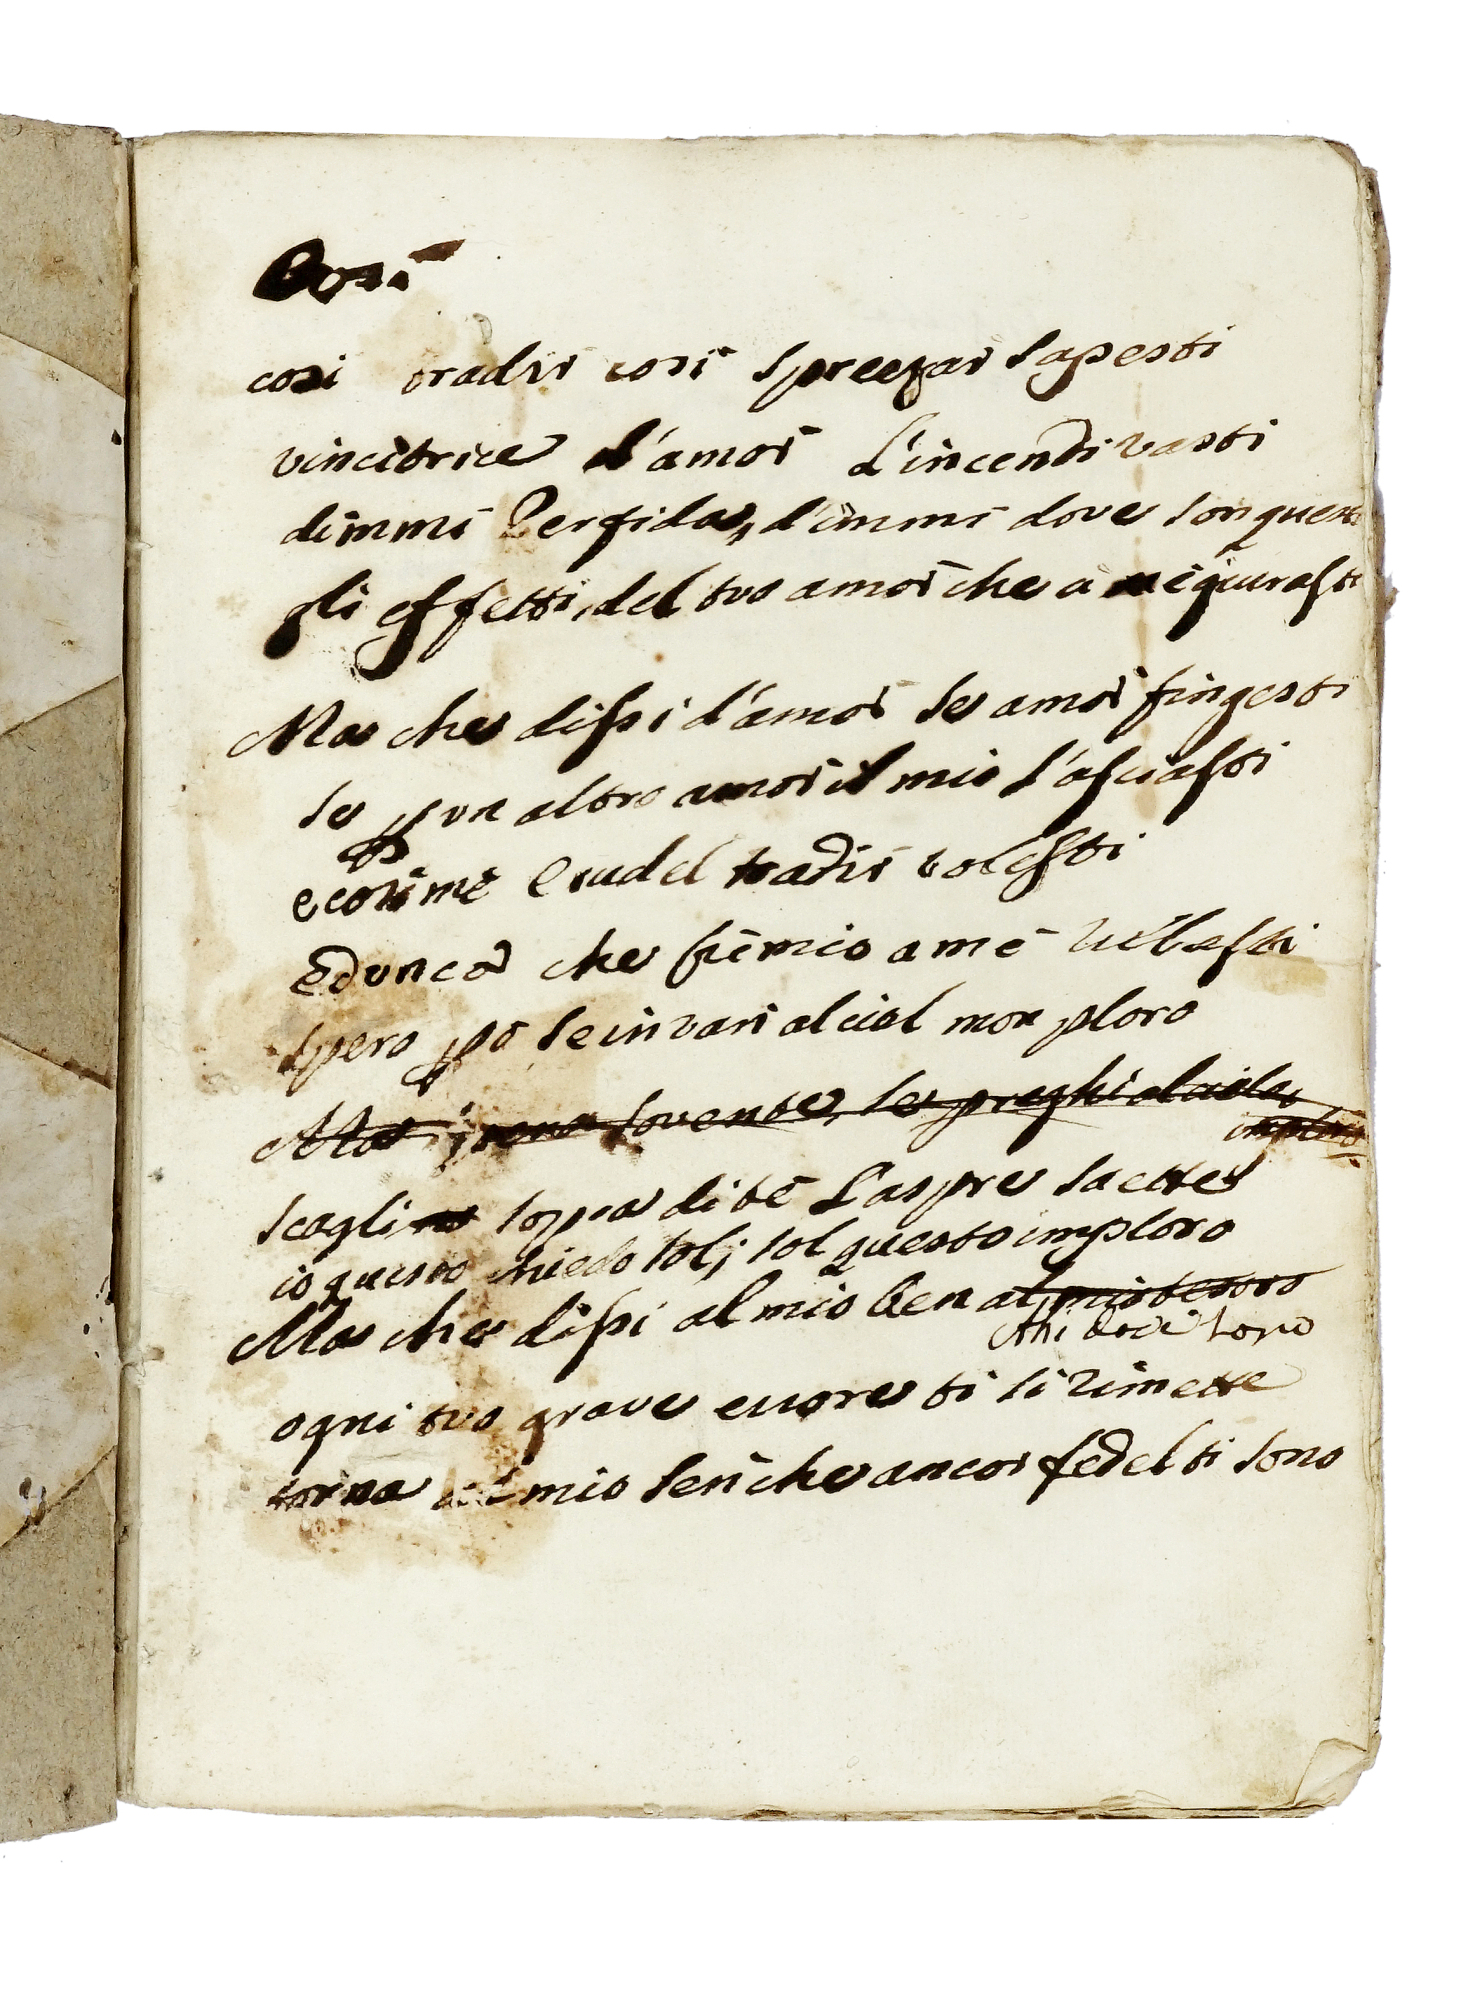 Cosi
cosi tradir cosi spreczar sapesti
vincitrice d'amor L'incendi vasti
dimmi Perfida, dimmi dove son questi
gli effetti, del tuo amor che a me giurasti
Ma che dissi d'amor se amor fingesti
se p un altro amor il mio l'asciasti
e cosi me Crudel tradir volesti
e dunca che
spero pò se in van al ciel non ploro
Ma sovente, se preghi al ciele
imploro
scagli sopra di tè L'aspre saette
io questo chiedo sol, sol questo imploro
Ma che dissi al mio ben al mio tesoro
ogni tuo grave errore ti si rimette
torna al mio sen che ancor fedel ti sono